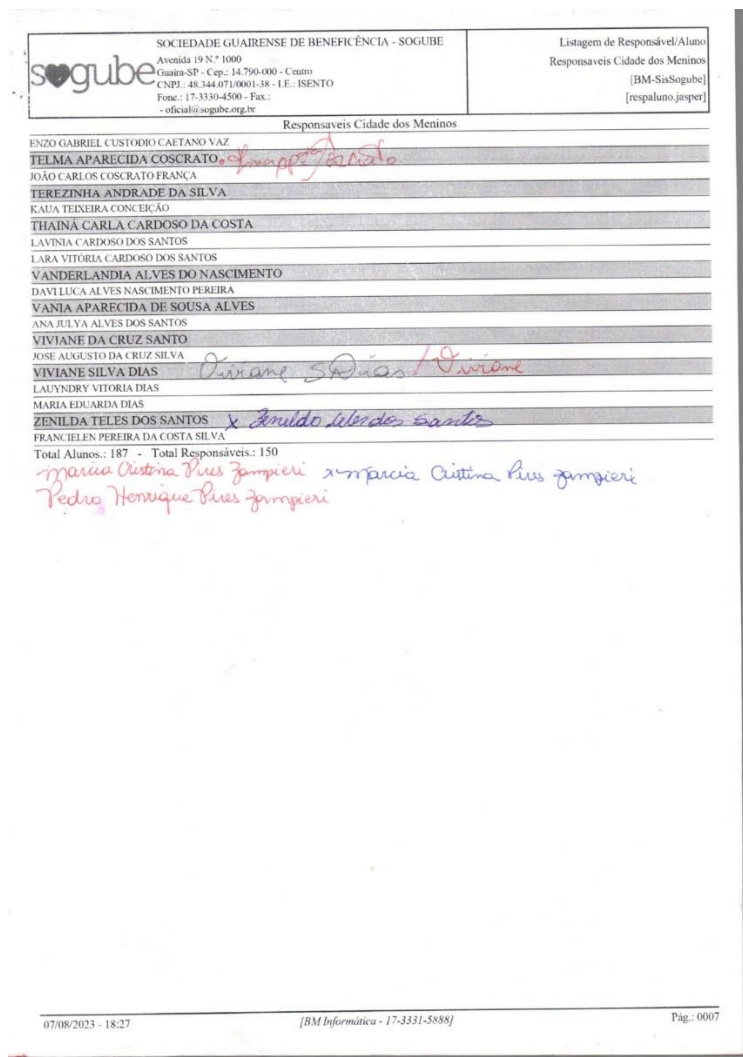 sogube
SOCIEDADE GUAIRENSE DE BENEFICÊNCIA - SOGUBE
Avenida 19 N.º 1000
Guaira-SP - Cep.: 14.790-000 - Centro
CNPJ.: 48.344.071/0001-38 - I.E.: ISENTO
Fone.: 17-3330-4500 - Fax.:
- oficial@sogube.org.br
Listagem de Responsável/Aluno
Responsaveis Cidade dos Meninos
[BM-SisSogube]
[respaluno.jasper]
Responsaveis Cidade dos Meninos
ENZO GABRIEL CUSTODIO CAETANO VAZ
TELMA APARECIDA COSCRATO
JOÃO CARLOS COSCRATO FRANÇA
TEREZINHA ANDRADE DA SILVA
KAUA TEIXEIRA CONCEIÇÃO
THAINÁ CARLA CARDOSO DA COSTA
LAVINIA CARDOSO DOS SANTOS
LARA VITÓRIA CARDOSO DOS SANTOS
VANDERLANDIA ALVES DO NASCIMENTO
DAVI LUCA ALVES NASCIMENTO PEREIRA
VANIA APARECIDA DE SOUSA ALVES
ANA JULYA ALVES DOS SANTOS
VIVIANE DA CRUZ SANTO
JOSE AUGUSTO DA CRUZ SILVA
VIVIANE SILVA DIAS Viviane S Dias / Viviane
LAUYNDRY VITORIA DIAS
MARIA EDUARDA DIAS
ZENILDA TELES DOS SANTOS x Zenilda teles dos Santos
FRANCIELEN PEREIRA DA COSTA SILVA
Total Alunos.: 187 - Total Responsáveis.: 150
Marcia Cristina Pires Zampieri x Marcia Cristina Pires Zampieri
Pedro Henrique Pires Zampieri
07/08/2023 - 18:27 [BM Informática - 17-3331-5888] Pág.: 0007